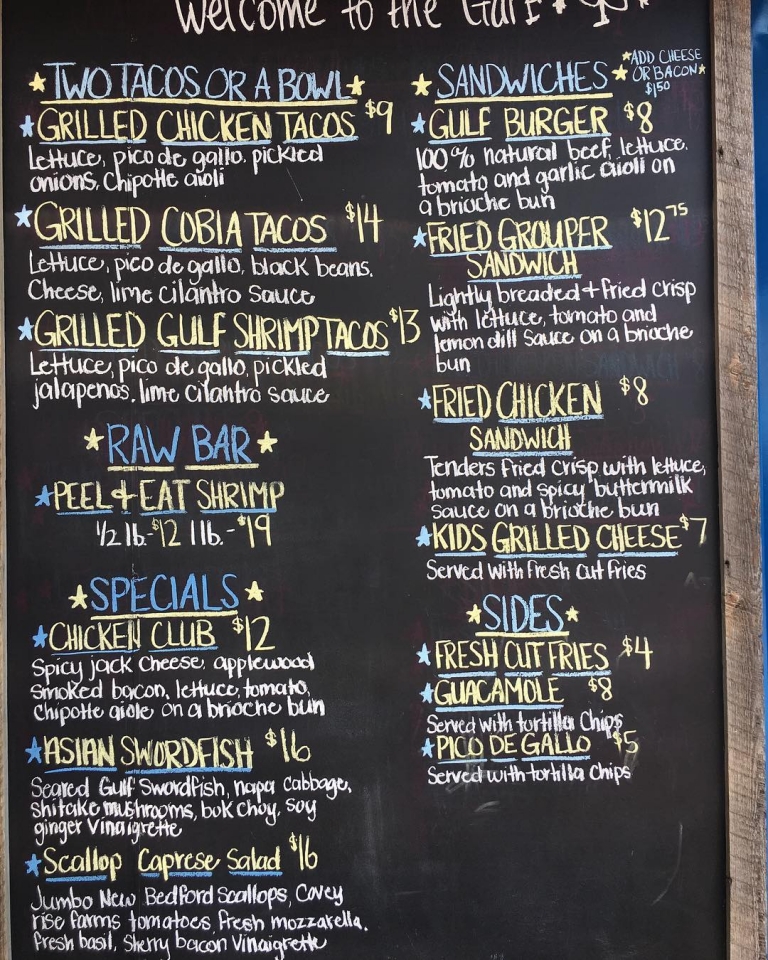 Welcome to the Gulf
TWO TACOS OR A BOWL
GRILLED CHICKEN TACOS $9
Lettuce, pico de gallo, pickled
onions, Chipotle aioli
GRILLED COBIA TACOS $14
Lettuce, pico de gallo, black beans,
Cheese, lime cilantro sauce
GRILLED GULF SHRIMP TACOS $13
Lettuce, pico de gallo, pickled
jalapenos, lime cilantro sauce
RAW BAR
PEEL & EAT SHRIMP
1/2 lb.-$12 1 lb.-$19
SPECIALS
CHICKEN CLUB $12
Spicy jack cheese, applewood
smoked bacon, lettuce, tomato,
Chipotle aiole on a brioche bun
ASIAN SWORDFISH $16
Seared Gulf Swordfish, napa cabbage,
shitake mushrooms, bok choy, soy
ginger vinaigrette
Scallop Caprese Salad $16
Jumbo New Bedford Scallops, Covey
rise farms tomatoes, fresh mozzarella,
fresh basil, Sherry bacon Vinaigrette
SANDWICHES
ADD CHEESE
OR BACON
$1.50
GULF BURGER $8
100% natural beef, lettuce,
tomato and garlic aioli on
a brioche bun
FRIED GROUPER $12.75
SANDWICH
Lightly breaded + fried crisp
with lettuce, tomato and
lemon dill sauce on a brioche
bun
FRIED CHICKEN $8
SANDWICH
Tenders fried crisp with lettuce,
tomato and spicy buttermilk
sauce on a brioche bun
KIDS GRILLED CHEESE $7
Served with fresh cut fries
SIDES
FRESH CUT FRIES $4
GUACAMOLE $8
Served with tortilla Chips
PICO DE GALLO $5
Served with tortilla chips